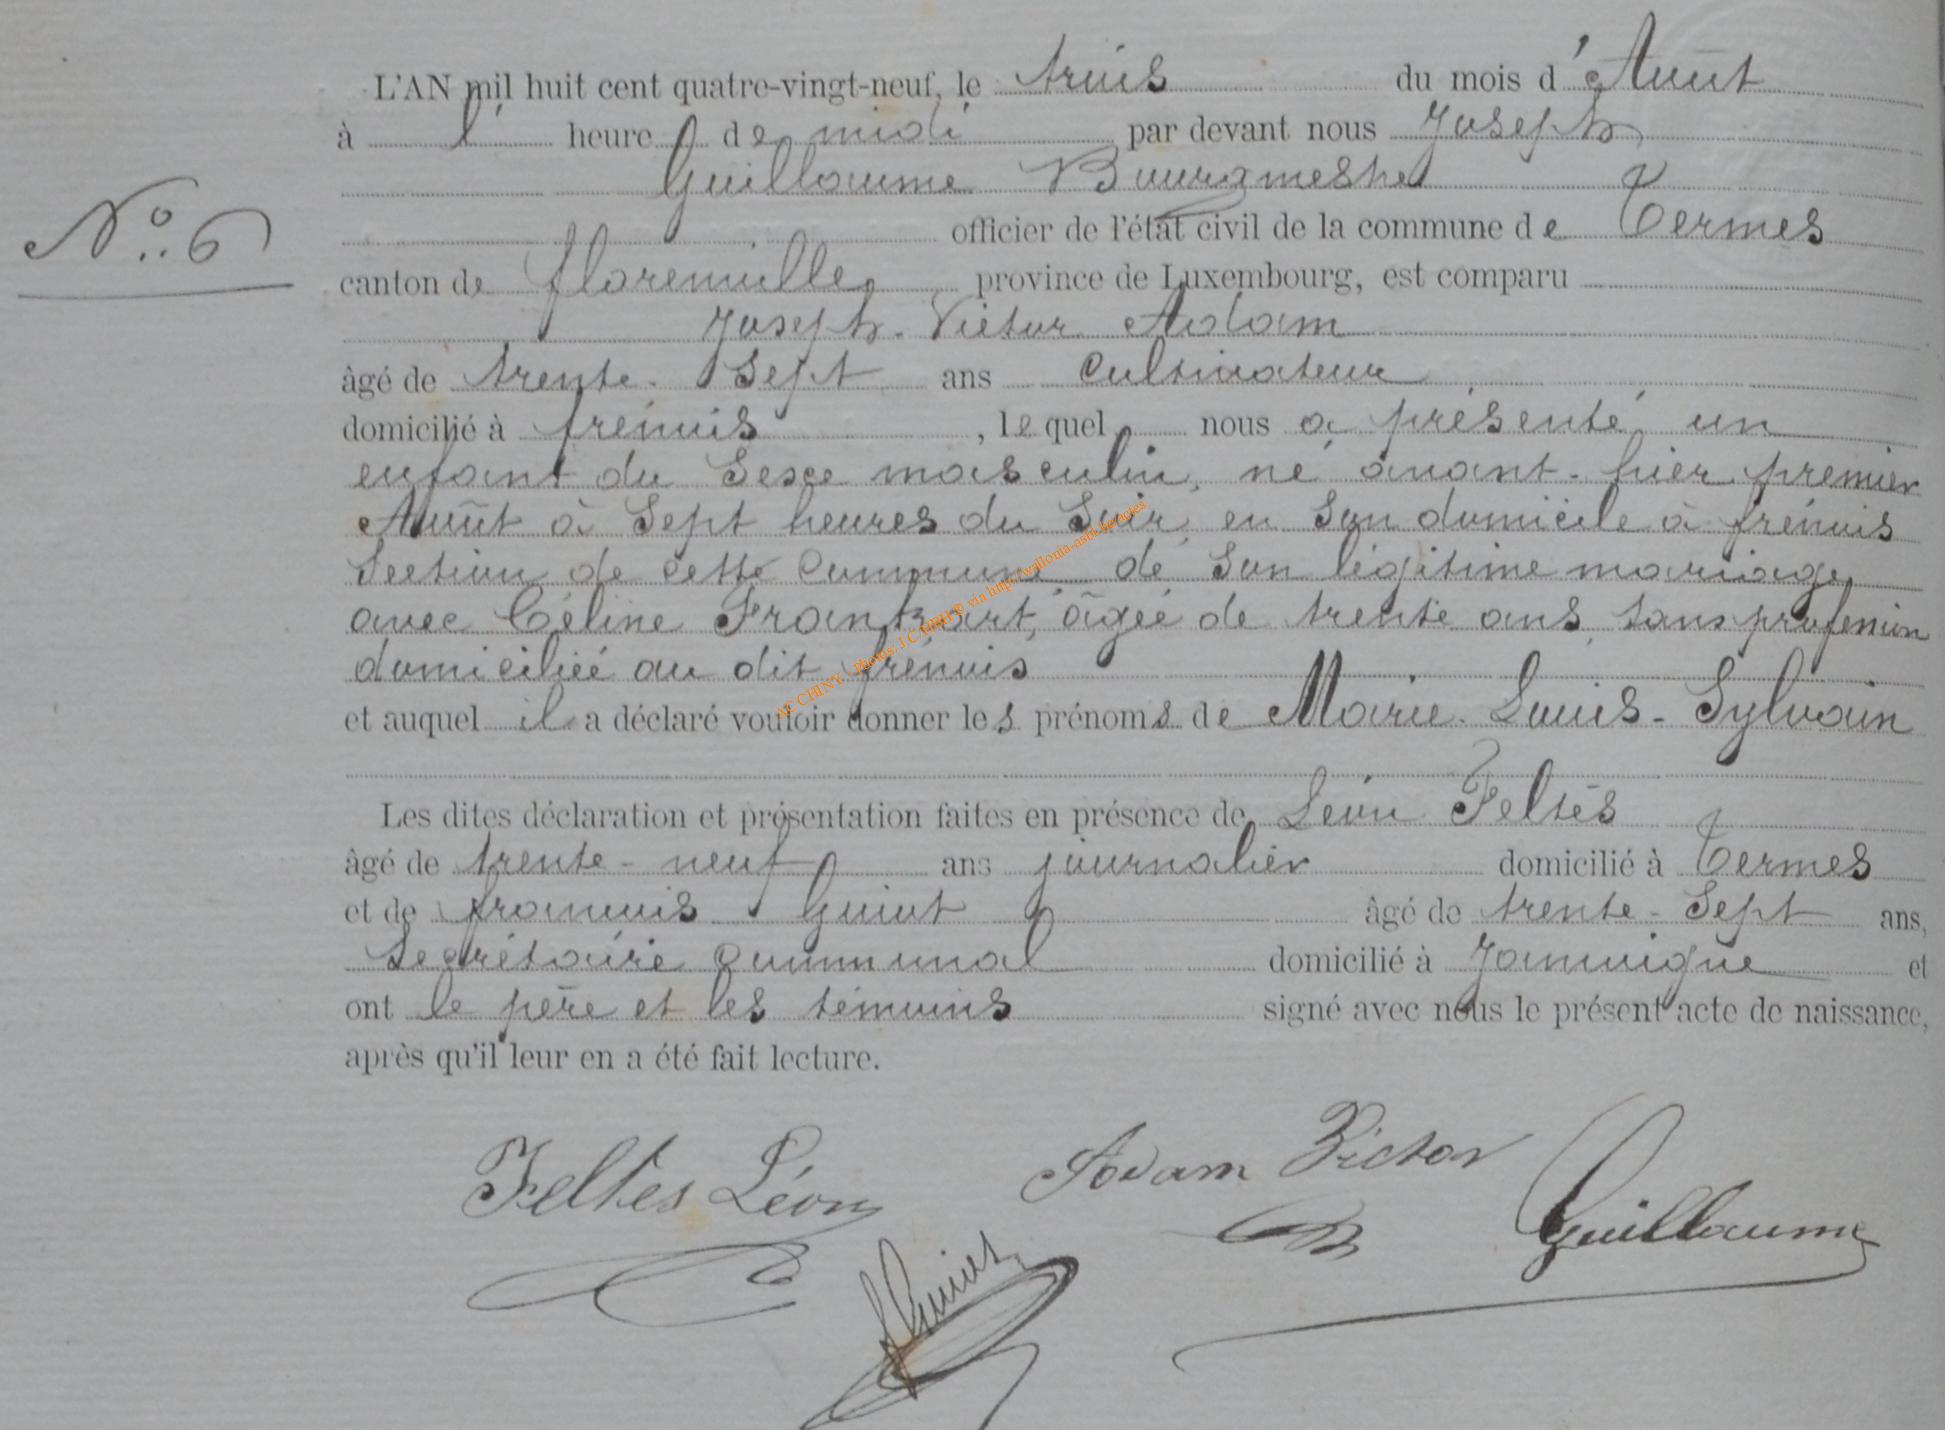 L'AN mil huit cent quatre-vingt-neuf, le trois du mois d'Août
à l' heure de midi par devant nous Joseph
Guillaume Bourgmestre
N° 6
officier de l'état civil de la commune de Termes
canton de florenville province de Luxembourg, est comparu
Joseph-Victor Adam
âgé de trente-Sept ans Cultivateur
domicilié à frénois, lequel nous a présenté un
enfant du Sexe masculin, né avant-hier premier
Août à Sept heures du Soir, en Son domicile à frénois
Section de cette Commune de Son légitime mariage
avec Céline Frankart, âgée de trente ans, Sans profession
domiciliée au dit frénois
et auquel il a déclaré vouloir donner les prénoms de Marie-Louis-Sylvain
Les dites déclaration et présentation faites en présence de Léon Feltés
âgé de trente-neuf ans journalier domicilié à Termes
et de francois Guiot âgé de trente-Sept ans,
Secrétaire Communal domicilié à Jamoigne et
ont le père et les témoins signé avec nous le présent acte de naissance,
après qu'il leur en a été fait lecture.
Feltès Léon Adam Victor Guillaume
Guiot